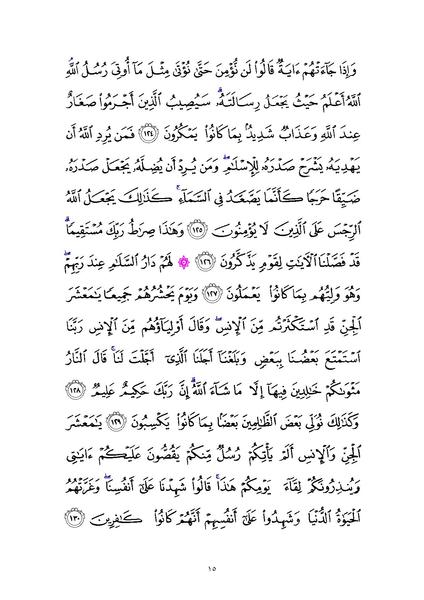 وَإِذَا جَآءَتْهُمْ ءَايَةٌ قَالُوا۟ لَن نُّؤْمِنَ حَتَّىٰ نُؤْتَىٰ مِثْلَ مَآ أُوتِىَ رُسُلُ ٱللَّهِ ۘ
ٱللَّهُ أَعْلَمُ حَيْثُ يَجْعَلُ رِسَالَتَهُۥ ۗ سَيُصِيبُ ٱلَّذِينَ أَجْرَمُوا۟ صَغَارٌ
عِندَ ٱللَّهِ وَعَذَابٌ شَدِيدٌۢ بِمَا كَانُوا۟ يَمْكُرُونَ ﴿١٢٤﴾ فَمَن يُرِدِ ٱللَّهُ أَن
يَهْدِيَهُۥ يَشْرَحْ صَدْرَهُۥ لِلْإِسْلَٰمِ ۖ وَمَن يُرِدْ أَن يُضِلَّهُۥ يَجْعَلْ صَدْرَهُۥ
ضَيِّقًا حَرَجًا كَأَنَّمَا يَصَّعَّدُ فِى ٱلسَّمَآءِ ۚ كَذَٰلِكَ يَجْعَلُ ٱللَّهُ
ٱلرِّجْسَ عَلَى ٱلَّذِينَ لَا يُؤْمِنُونَ ﴿١٢٥﴾ وَهَٰذَا صِرَٰطُ رَبِّكَ مُسْتَقِيمًا ۗ
قَدْ فَصَّلْنَا ٱلْءَايَٰتِ لِقَوْمٍ يَذَّكَّرُونَ ﴿١٢٦﴾ ۞ لَهُمْ دَارُ ٱلسَّلَٰمِ عِندَ رَبِّهِمْ ۖ
وَهُوَ وَلِيُّهُم بِمَا كَانُوا۟ يَعْمَلُونَ ﴿١٢٧﴾ وَيَوْمَ يَحْشُرُهُمْ جَمِيعًا يَٰمَعْشَرَ
ٱلْجِنِّ قَدِ ٱسْتَكْثَرْتُم مِّنَ ٱلْإِنسِ ۖ وَقَالَ أَوْلِيَآؤُهُم مِّنَ ٱلْإِنسِ رَبَّنَا
ٱسْتَمْتَعَ بَعْضُنَا بِبَعْضٍ وَبَلَغْنَآ أَجَلَنَا ٱلَّذِىٓ أَجَّلْتَ لَنَا ۚ قَالَ ٱلنَّارُ
مَثْوَىٰكُمْ خَٰلِدِينَ فِيهَآ إِلَّا مَا شَآءَ ٱللَّهُ ۗ إِنَّ رَبَّكَ حَكِيمٌ عَلِيمٌ ﴿١٢٨﴾
وَكَذَٰلِكَ نُوَلِّى بَعْضَ ٱلظَّٰلِمِينَ بَعْضًۢا بِمَا كَانُوا۟ يَكْسِبُونَ ﴿١٢٩﴾ يَٰمَعْشَرَ
ٱلْجِنِّ وَٱلْإِنسِ أَلَمْ يَأْتِكُمْ رُسُلٌ مِّنكُمْ يَقُصُّونَ عَلَيْكُمْ ءَايَٰتِى
وَيُنذِرُونَكُمْ لِقَآءَ يَوْمِكُمْ هَٰذَا ۚ قَالُوا۟ شَهِدْنَا عَلَىٰٓ أَنفُسِنَا ۖ وَغَرَّتْهُمُ
ٱلْحَيَوٰةُ ٱلدُّنْيَا وَشَهِدُوا۟ عَلَىٰٓ أَنفُسِهِمْ أَنَّهُمْ كَانُوا۟ كَٰفِرِينَ ﴿١٣٠﴾
١٥